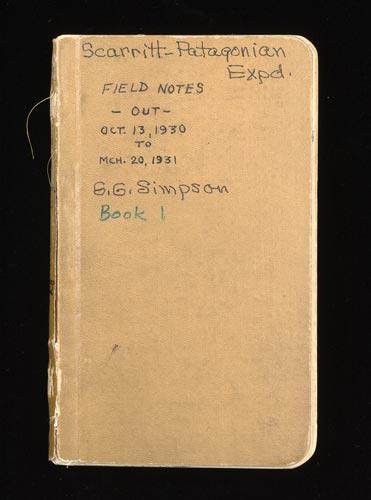 Scarritt-Patagonian
Expd.
FIELD NOTES
- OUT -
OCT. 13, 1930
TO
MCH. 20, 1931
G.G. Simpson
Book 1